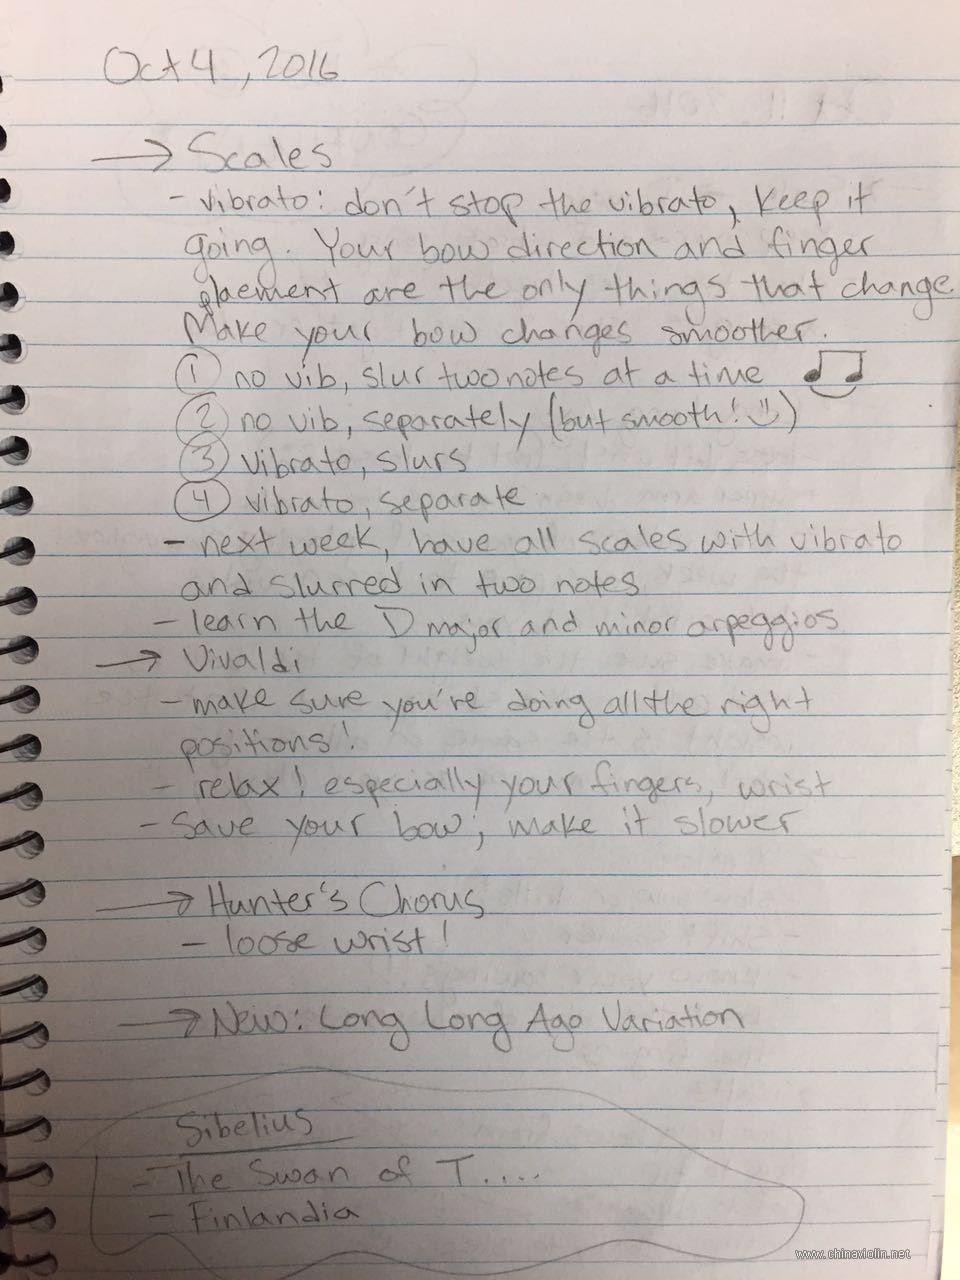 Oct 4, 2016
→ Scales
- vibrato: don't stop the vibrato, keep it
going. Your bow direction and finger
plaement are the only things that change.
Make your bow changes smoother.
① no vib, slur two notes at a time
② no vib, separately (but smooth! :))
③ vibrato, slurs
④ vibrato, separate
- next week, have all scales with vibrato
and slurred in two notes
- learn the D major and minor arpeggios
→ Vivaldi
- make sure you're doing all the right
positions!
- relax! especially your fingers, wrist
- Save your bow, make it slower
→ Hunter's Chorus
- loose wrist!
→ New: Long Long Ago Variation
Sibelius
- The Swan of T....
- Finlandia
www.chinaviolin.net